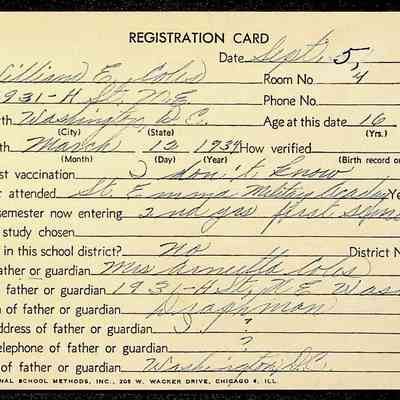 REGISTRATION CARD
Date Sept. 5,
illiam E. Coles Room No. 4
931-H St. N.E. Phone No.
rth Washington, D.C. Age at this date 16
(City) (State) (Yrs.)
th March 12 1939 How verified
(Month) (Day) (Year) (Birth record or
st vaccination I don't know
t attended St. Emma Military Academy Ye
semester now entering 2nd first
study chosen
in this school district? No District N
ather or guardian Mrs Coles
father or guardian 1931-H St., N.E. Was
n of father or guardian
ddress of father or guardian ?
elephone of father or guardian ?
of father or guardian Washington, D.C.
NAL SCHOOL METHODS, INC., 205 W. WACKER DRIVE, CHICAGO 6, ILL.